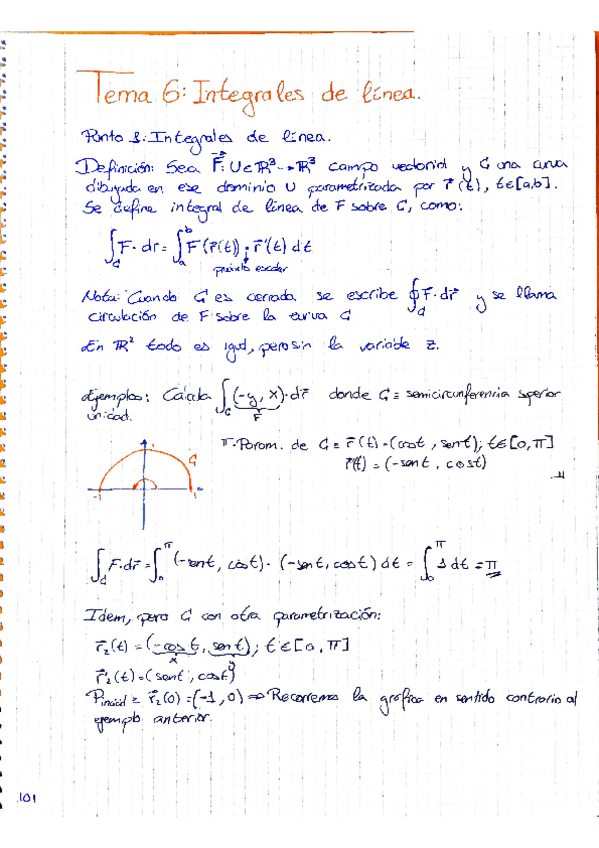 Tema 6: Integrales de línea.
Punto 1: Integrales de línea.
Definición: Sea F: U⊂ℝ³→ℝ³ campo vectorial y C una curva
dibujada en ese dominio U parametrizada por r⃗(t), t∈[a,b].
Se define integral de línea de F sobre C, como:
∫_C F·dr = ∫_a^b F(r⃗(t))·r⃗'(t) dt
producto escalar
Nota: Cuando C es cerrada se escribe ∮_C F·dr⃗ y se llama
circulación de F sobre la curva C
En ℝ² todo es igual, pero sin la variable z.
Ejemplos: Calcula ∫_C (-y, x)·dr⃗ donde C ≡ semicircunferencia superior
F
unidad.
π·Param. de C ≡ r⃗(t) = (cost, sent); t∈[0,π]
r⃗'(t) = (-sent, cost)
1
C
-1
1
∫_C F·dr⃗ = ∫_0^π (-sent, cost)·(-sent, cost) dt = ∫_0^π 1 dt = π
Idem, pero C con otra parametrización:
r⃗₂(t) = (-cost, sent); t∈[0, π]
x y
r⃗₂'(t) = (sent, cost)
P inicial ≡ r⃗₂(0) = (-1, 0) ⇒ Recorremos la gráfica en sentido contrario al
ejemplo anterior.
101